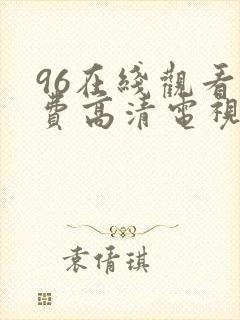 96在綫觀看
費高清電視
袁倩琪